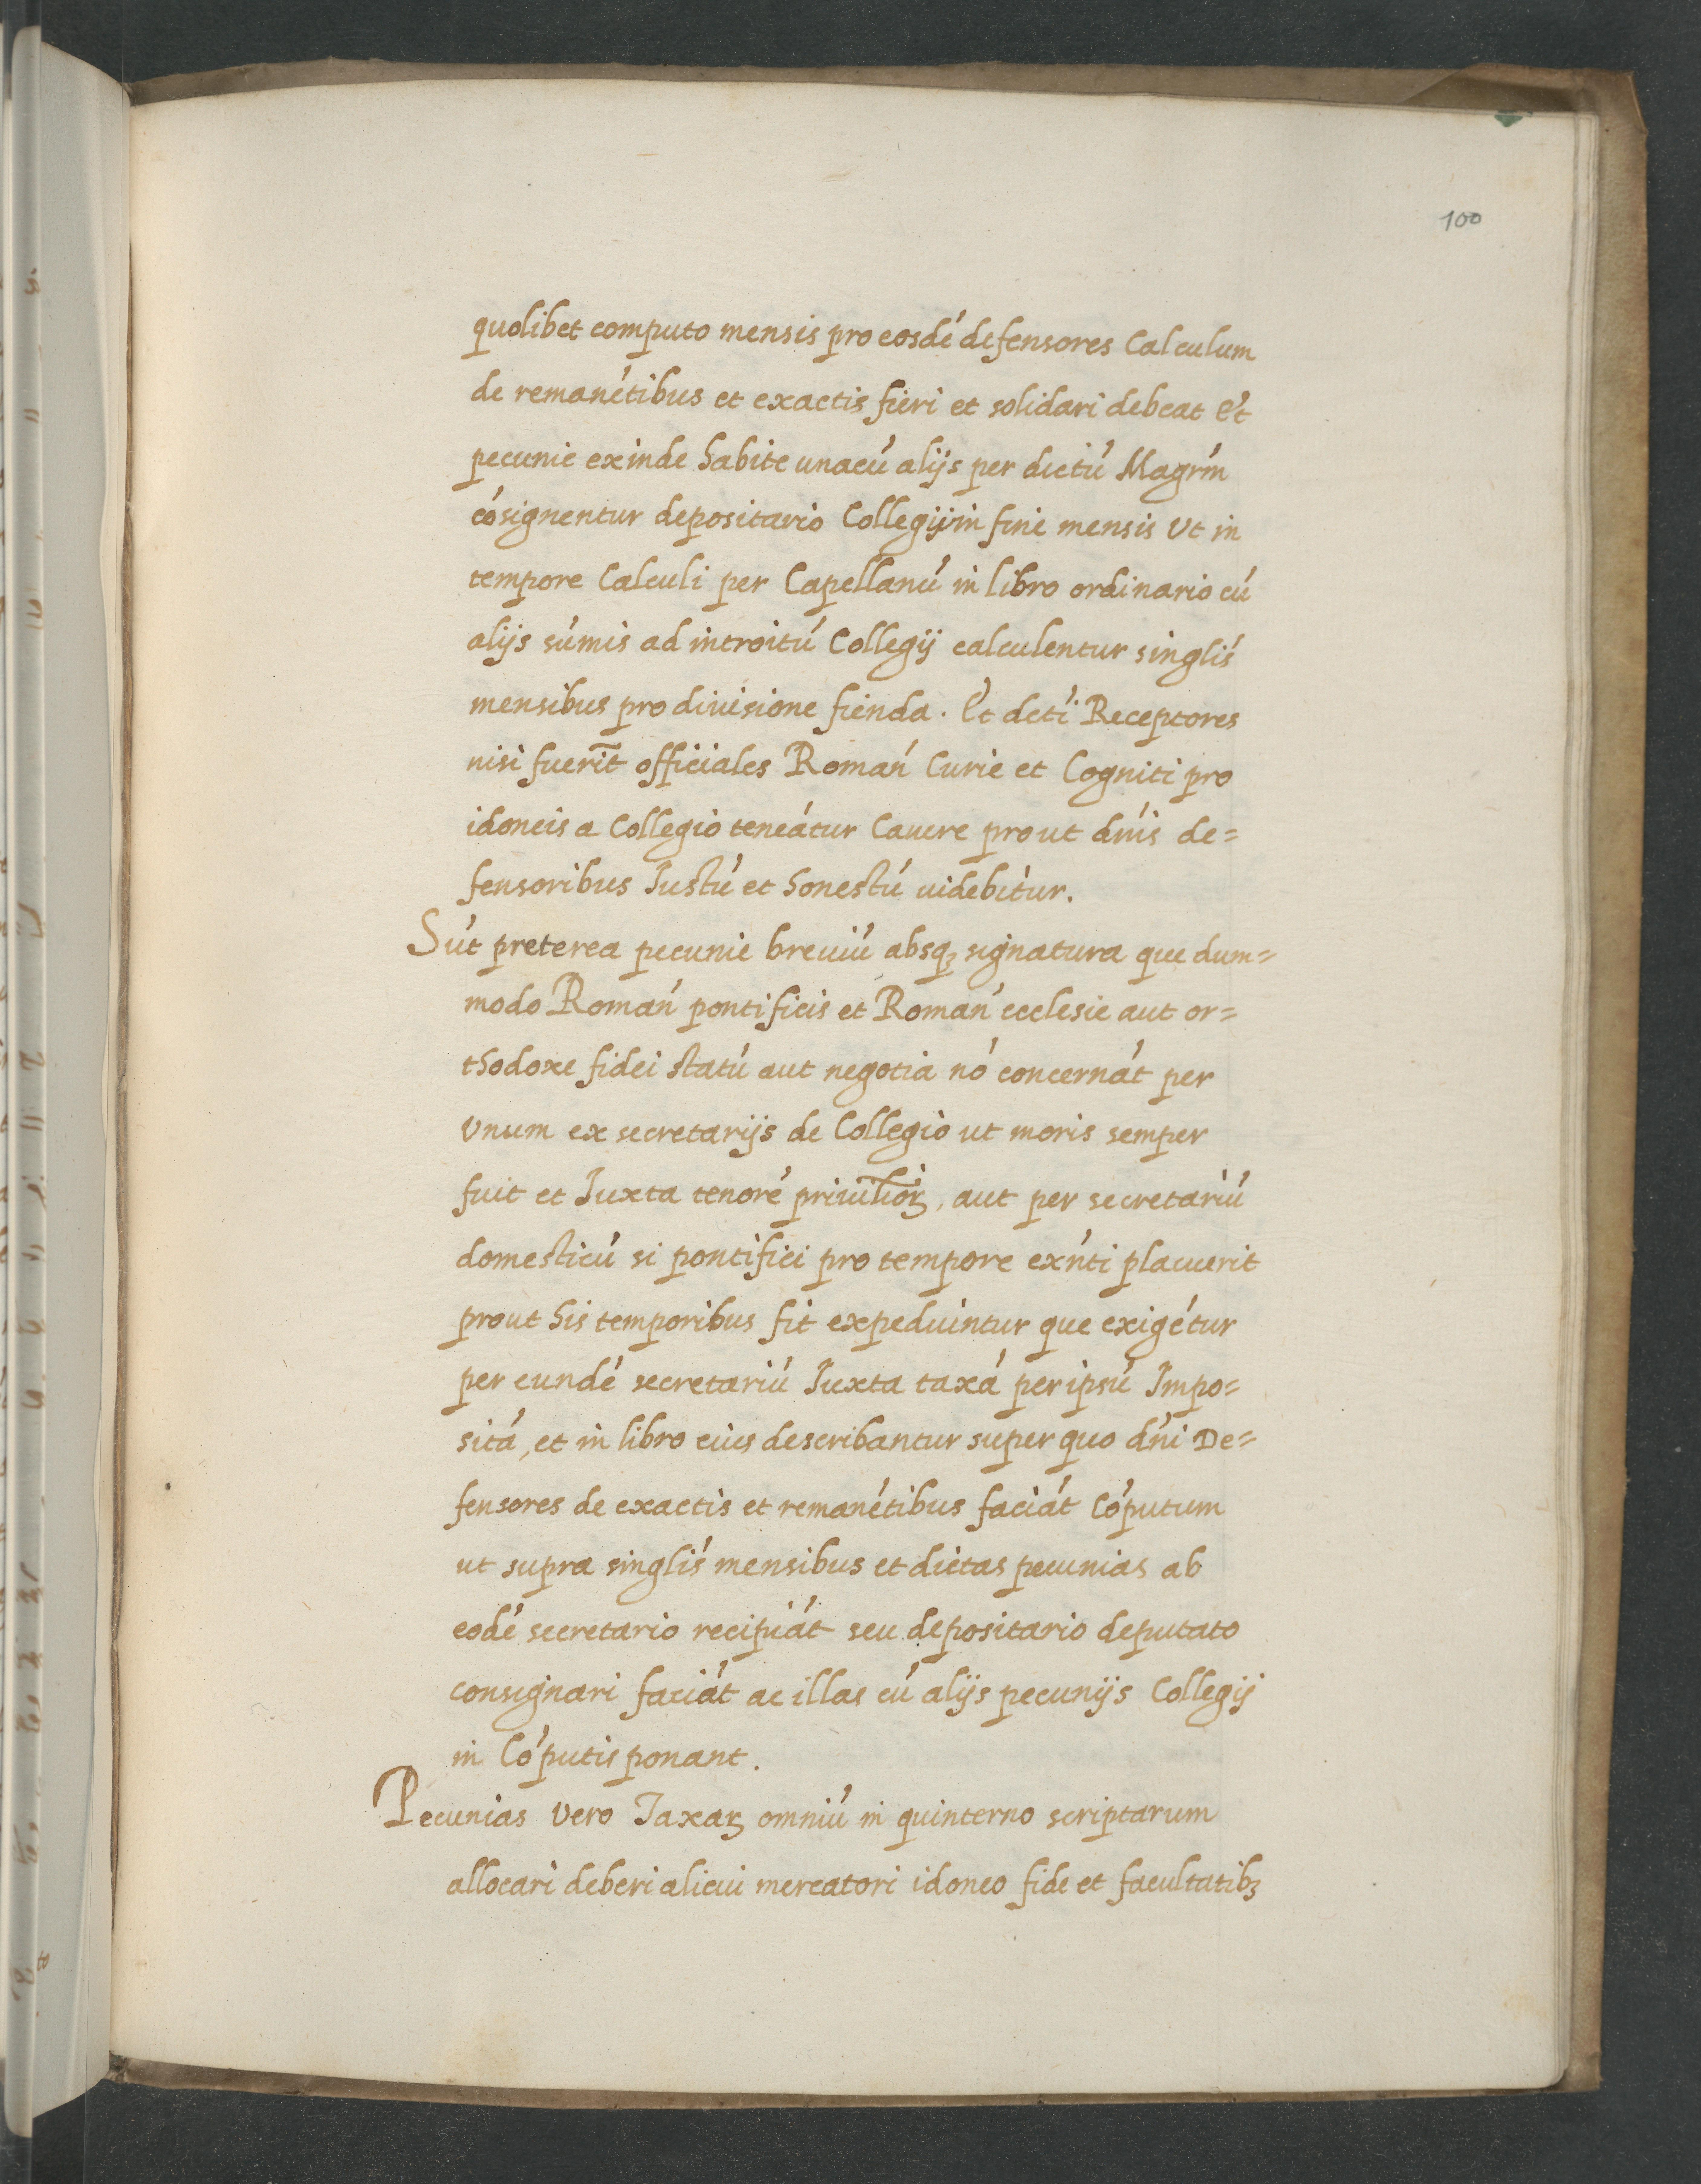 100
quolibet computo mensis pro eosdé defensores Calculum
de remanétibus et exactis fieri et solidari debeat Et
pecunie exinde habite unacú alijs per dictú Magrḿ
cósignentur depositario Collegij in fine mensis Ut in
tempore Calculi per Capellanú in libro ordinario cú
alijs súmis ad introitú Collegij calculentur singlís
mensibus pro diuisione fienda. Et detí Receptores
nisi fuerīt officiales Romań Curie et Cogniti pro
idoneis a Collegio teneátur Cauere prout dńis de=
fensoribus Iustú et honestú uidebitur.
Sút preterea pecunie breuiú absqꝫ signatura que dum=
modo Romań pontificis et Romań ecclesie aut or=
thodoxe fidei statú aut negotia nó concernát per
Vnum ex secretarijs de Collegio ut moris semper
fuit et Iuxta tenoré priuil̃ioꝝ, aut per secretariú
domesticú si pontifici pro tempore exńti placuerit
prout his temporibus fit expediuintur que exigétur
per eundé secretariú Iuxta taxá per ipsú Impo=
sitá, et in libro eius describantur super quo dńi De=
fensores de exactis et remanétibus faciát Cóputum
ut supra singlís mensibus et dictas pecunias ab
eodé secretario recipiát seu depositario deputato
consignari faciát ac illas cú alijs pecunijs Collegij
in Cóputis ponant.
Pecunias Vero Taxaꝝ omniú in quinterno scriptarum
allocari deberi alicui mercatori idoneo fide et facultatibꝫ